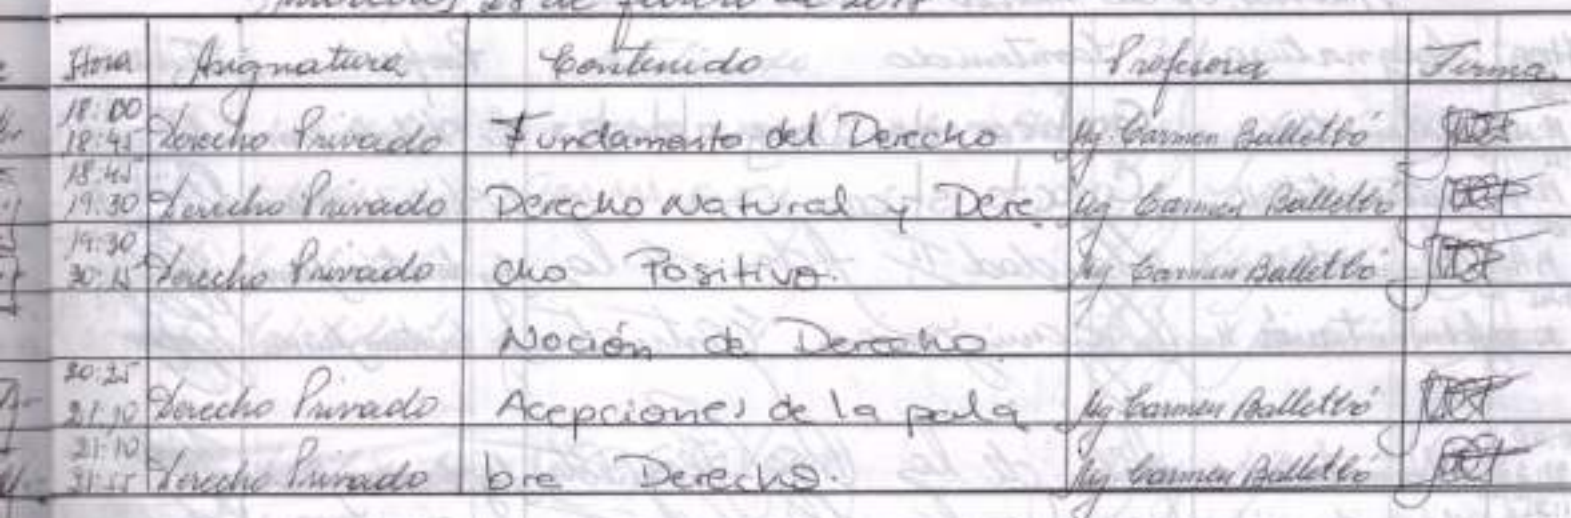 Hora Asignatura Contenido Profesora Firma
18:00
18:45 Derecho Privado Fundamento del Derecho Mg. Carmen Balletbó
18:45
19:30 Derecho Privado Derecho Natural y Dere Mg. Carmen Balletbó
19:30
20:15 Derecho Privado cho Positivo. Mg. Carmen Balletbó
Noción de Derecho
20:25
21:10 Derecho Privado Acepciones de la pala Mg. Carmen Balletbó
21:10
21:55 Derecho Privado bra Derecho. Mg. Carmen Balletbó